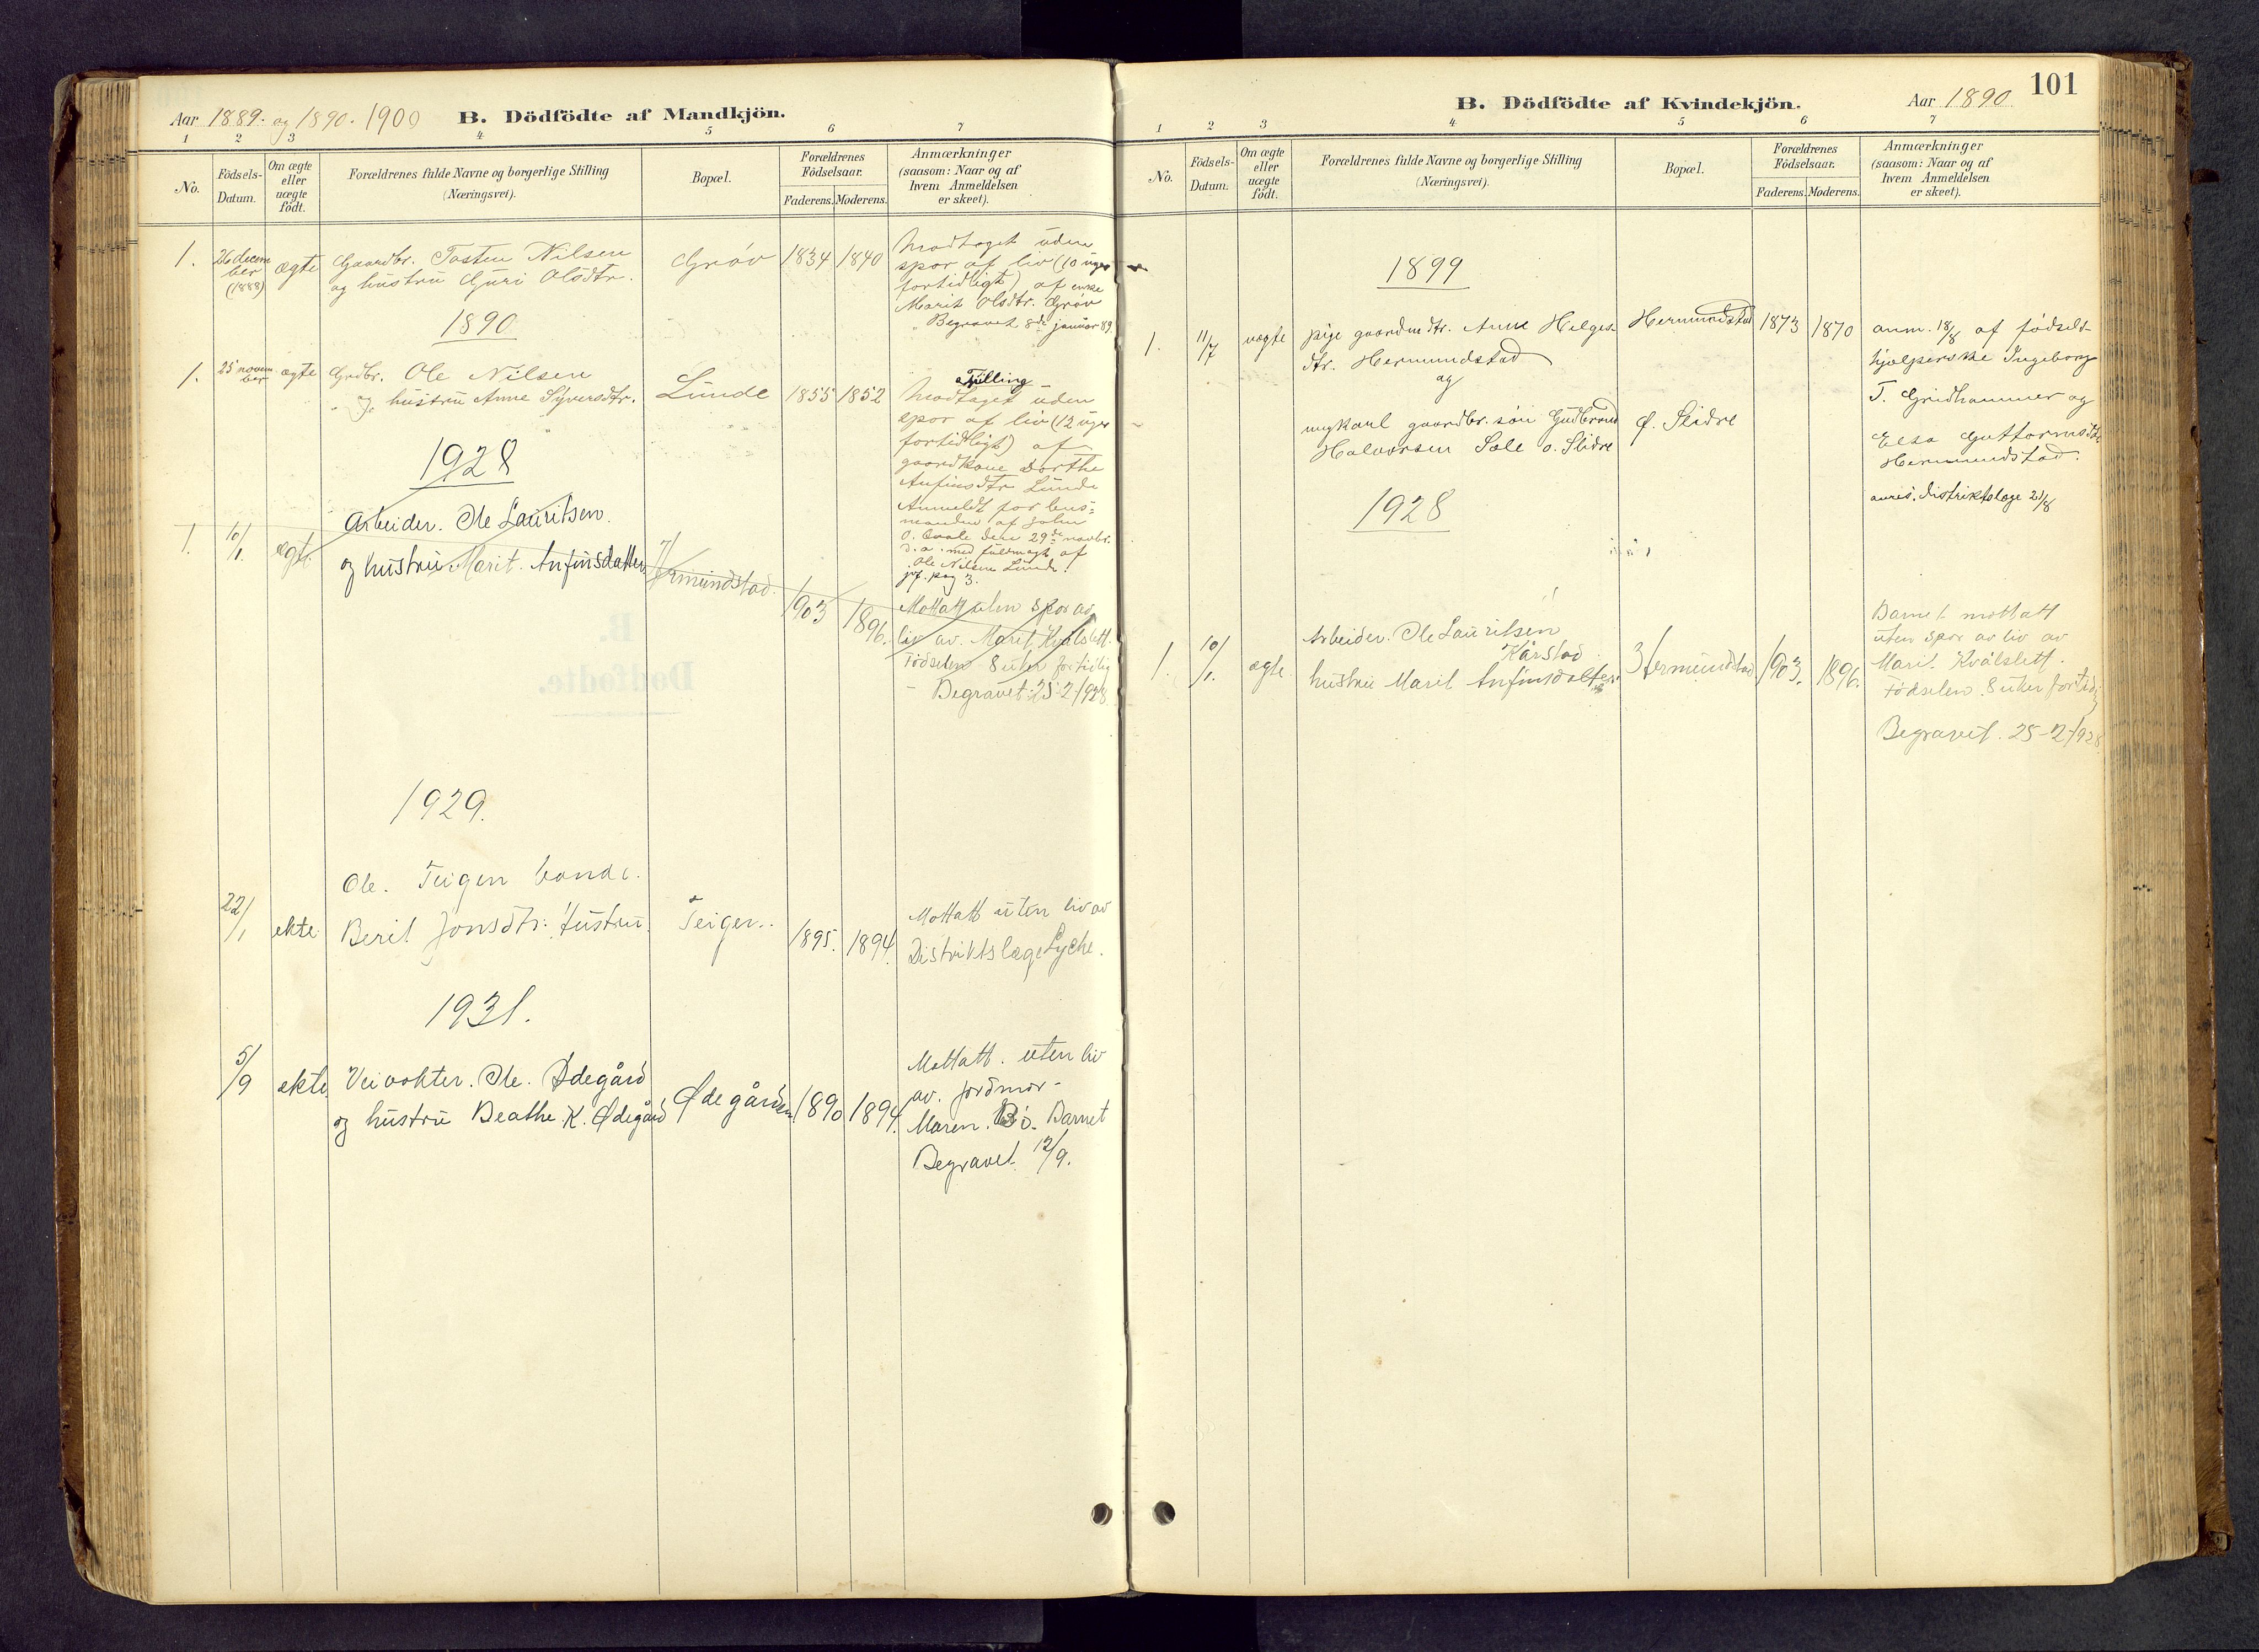 Aar 1889. og 1890. 1900 B. Dödfödte af Mandkjön.
1 2 3 4 5 6 7
No.
Födsels-
Datum.
Om ægte
eller
uægte
födt.
Forældrenes fulde Navne og borgerlige Stilling
(Næringsvei).
Bopæl.
Forældrenes
Födselsaar.
Faderens. Moderens.
Anmærkninger
(saasom: Naar og af
hvem Anmeldelsen
er skeet).
1.
26 decem
ber
(1888)
ægte
Gaardbr. Tosten Nilsen
og hustru Guri Olsdtr.
Grøv
1834 1840
Modtaget uden
spor af liv (10 uger
fortidligt) af enke
Marit Olsdtr. Grøv
Begravet 8de januar 89.
1890
1.
25 novem
ber
ægte
Grdbr. Ole Nilsen
og hustru Anne Syversdtr.
Lunde
1855 1852
Tvilling
Modtaget uden
spor af liv (12 uger
fortidligt) af
gaardkone Dorthe
Anfinsdtr Lunde
Anmeldt for lens-
manden af John
O. Qvale den 29de novbr.
d. a. med fuldmagt af
Ole Nilsen Lunde.
jvf. pag 3.
1928
1.
10/1.
ægt.
Arbeider. Ole Lauritsen.
og hustru Marit. Anfinsdatter
Hermundstad.
1903 1896.
Mottatt uten spor av
liv av. Marit Kvålslett.
Fødselen 8 uker fortidlig
- Begravet. 25-2-1928.
1929.
22/1
ekte.
Ole. Teigen bonde.
Berit Jonsdtr. hustru.
Teigen..
1895. 1894.
Mottatt uten liv av
Distriktslæge Lyche.
1931.
5/9
ekte.
Veivokter. Ole. Ødegård
og hustru Beathe. K. Ødegård
Ødegården.
1890 1894.
Mottatt. uten liv
av. jordmor -
Maren. Bø. Barnet
Begravet. 12/9.
101
B. Dödfödte af Kvindekjön. Aar 1890.
1 2 3 4 5 6 7
No.
Födsels-
Datum.
Om ægte
eller
uægte
födt.
Forældrenes fulde Navne og borgerlige Stilling
(Næringsvei).
Bopæl.
Forældrenes
Födselsaar.
Faderens. Moderens.
Anmærkninger
(saasom: Naar og af
hvem Anmeldelsen
er skeet).
1899
1.
11/7
uægte
pige gaardmdtr. Anne Helges-
dtr. Hermundstad
og
ungkarl gaardbr. søn Gudbrand
Halvorsen Sole ø. Slidre
Hermundstad
Ø. Slidre
1873 1870
anm. 18/8 af fødsels-
hjælperske Ingeborg
T. Gridhammer og
Elsa Guttormsdtr.
Hermundstad.
distriktslæge 21/8
1928
1.
10/1.
ægte.
Arbeider. Ole Lauritsen
Kårstad.
hustru Marit Anfinsdatter.
Hermundstad
1903. 1896.
Barnet mottatt
uten spor av liv av
Marit. Kvålslett.
Fødselen. 8 uker fortidlig
Begravet. 25-2-1928.